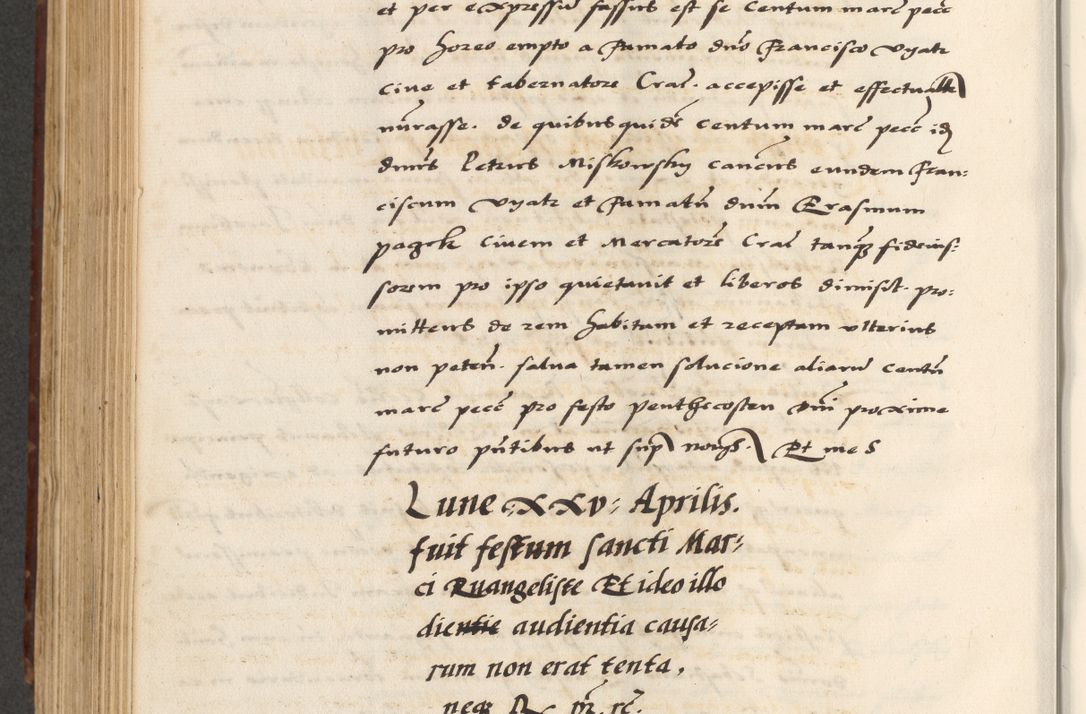 et per expressu fassus est se Centum marc pecc
pro horeo empto a famato dno Francisco Vyatr
Ciue et tabernatore Crac. accepisse et effectualr
nurasse. de quibus quide Centum marc pecc idz
dnus Petrus Miskowsky Cancus eundem Fran:
ciscum Vyatr et famatu dnm Erasmum
pagrk Ciuem et Mercatore Crac tanqz fideius:
sorem pro ipso quietauit et liberos dimisit. pro:
mittens de rem habitam et receptam vlterius
non peten. salua tamen solucione aliaru Centu
marc pecc pro festo penthecosten dni proxime
futuro pntibus ut sup Et me S
Lune xxv: Aprilis.
fuit festum sancti Mar:
ci Euangeliste Et ideo illo
die audientia causa:
rum non erat tenta,
neqz